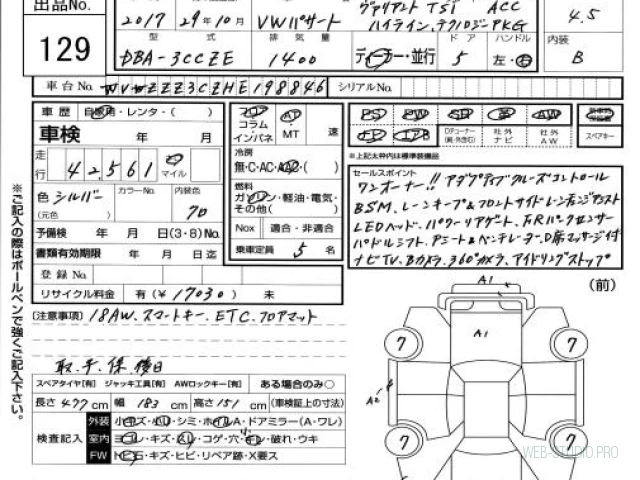 出品No. 129
2017 29年10月 VWパサート
ヴァリアント TSI ACC
ハイライン,テクノロジーPKG
4.5
型式 排気量 ドア ハンドル 内装
DBA-3CCZE 1400 ディーラー・並行 5 左・右 B
車台No. WVWZZZ3CZHE198846 シリアルNo.
車歴 自家用・レンタ・( )
車検 年 月
走行 42561 マイル
色 シルバー カラーNo. 内装色 クロ
(元色)
予備検 年 月 日(3・8)No.
書類有効期限 年 月 日迄
登録No.
リサイクル料金 有(¥17030) 未
フロア AT
コラム
インパネ MT 速
冷房
無・C・AC・AAC・( )
燃料
ガソリン・軽油・電気・
その他( )
Nox 適合・非適合
乗車定員 5 名
PS PW SR 革 AW
エアB 社外ナビ 社外AW スペアキー
※上記太枠内は標準装備品
セールスポイント
ワンオーナー!! アダプティブクルーズコントロール
BSM、レーンキープ&フロントサイドレーンチェンジアシスト
LEDヘッド、パワーリアゲート、F,Rパークセンサー
パドルシフト、Aシート&ベンチレーター、D席マッサージ付
ナビTV、Bカメラ、360°カメラ、アイドリングストップ
[注意事項] 18AW、スマートキー、ETC、フロアマット
取、手、保、後日
スペアタイヤ[有] ジャッキ工具[有] AWロックキー[有] ある場合のみ○
長さ 477 cm 幅 183 cm 高さ 151 cm (車検証上の寸法)
検査記入
外装 小キズ・小凹・シミ・ホイルA・ドアミラー(A・ワレ)
室内 ヨゴレ・キズ・スレ・コゲ・穴・キレ・破れ・ウキ
FW トビ石・キズ・ヒビ・リペア跡・X要ス
※ご記入の際はボールペンで強くご記入下さい。
(前)
A1
A1
7
7
A2
7
7
WEB-STUDIO.PRO